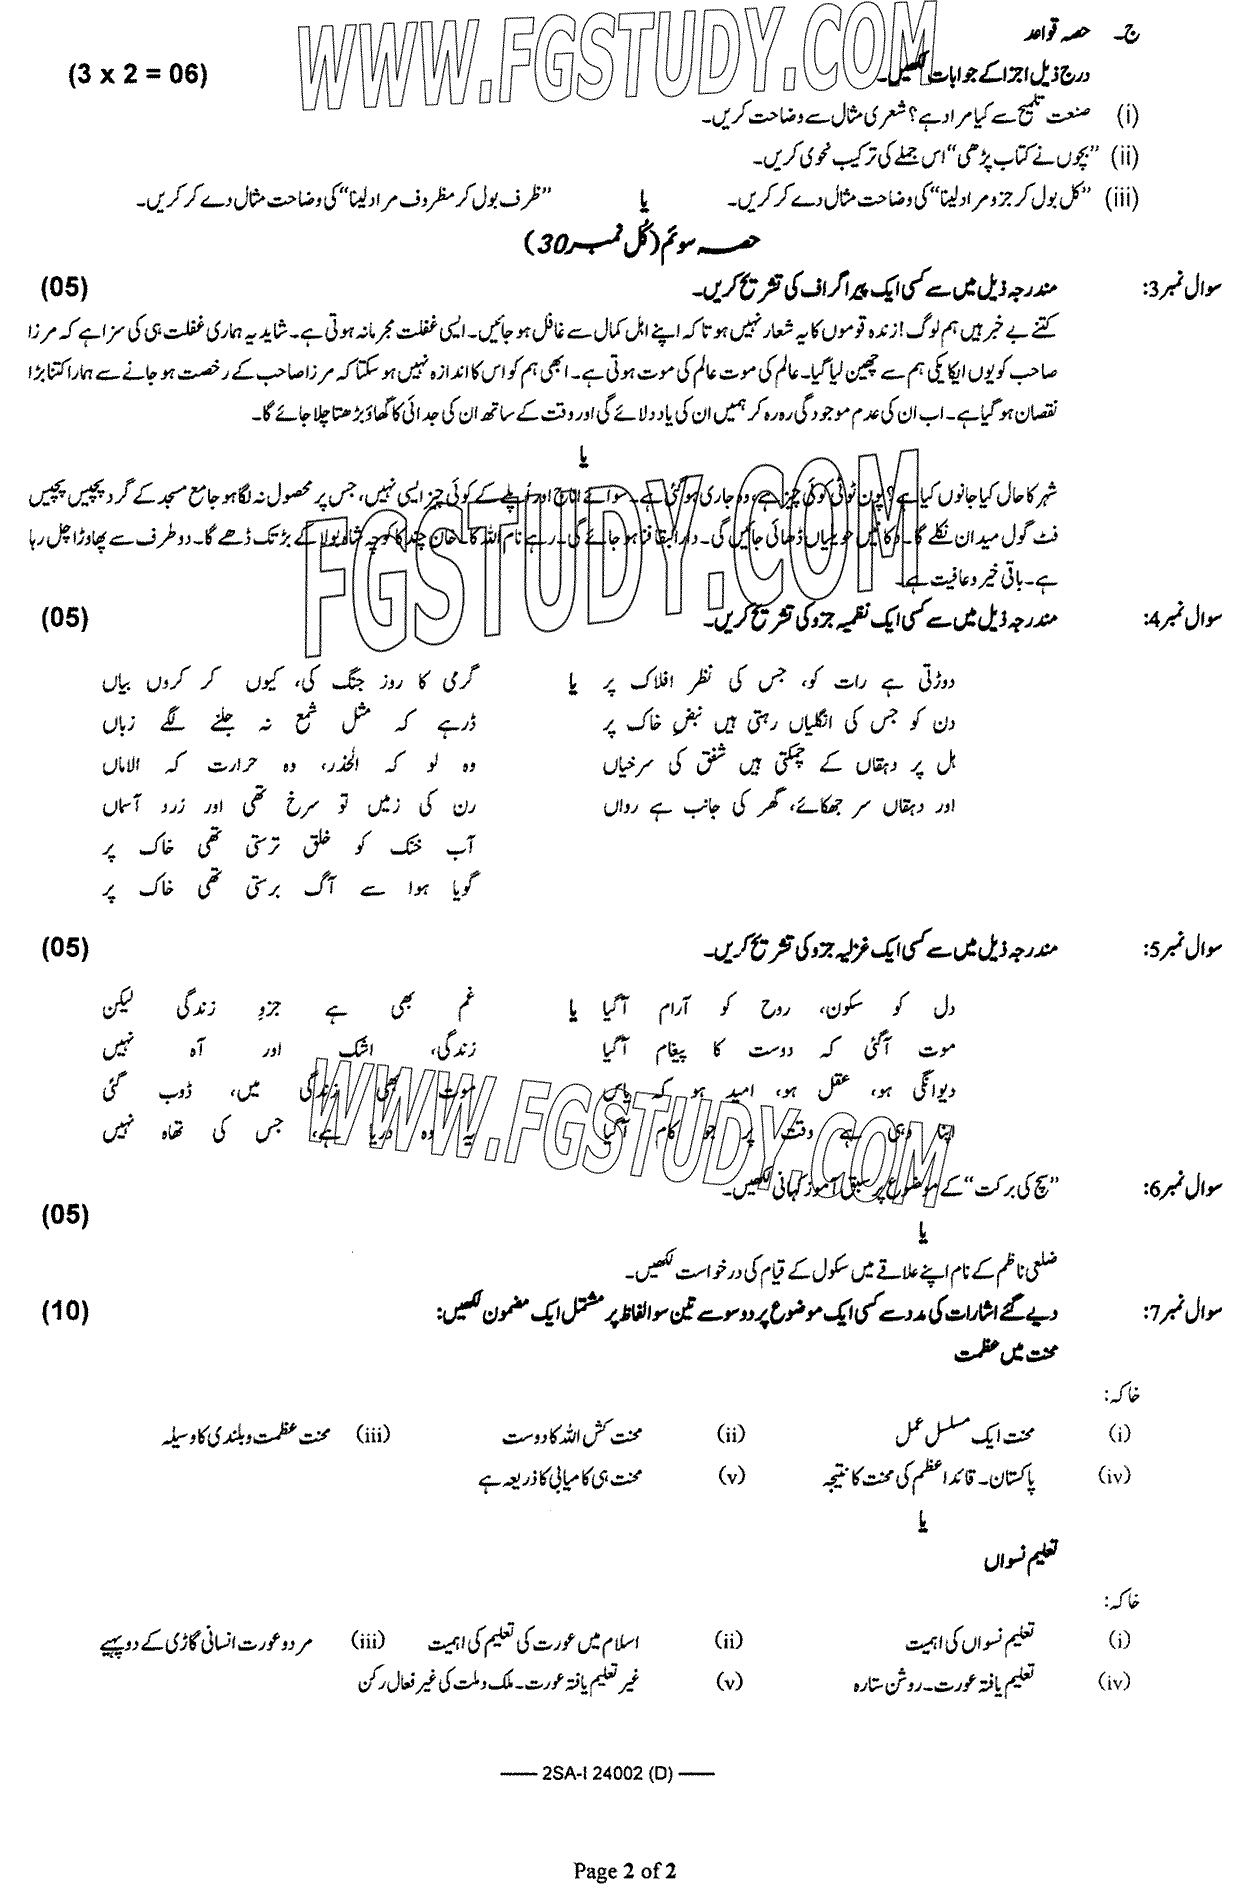 WWW.FGSTUDY.COM
ج۔ حصہ قواعد
درج ذیل اجزا کے جوابات لکھیں۔ (3 x 2 = 06)
(i) صنعت تلمیح سے کیا مراد ہے؟ شعری مثال سے وضاحت کریں۔
(ii) ”بچوں نے کتاب پڑھی“ اس جملے کی ترکیب نحوی کریں۔
(iii) ”کل بول کر جزو مراد لینا“ کی وضاحت مثال دے کر کریں۔ یا ”ظرف بول کر مظروف مراد لینا“ کی وضاحت مثال دے کر کریں۔
حصہ سوئم (کُل نمبر 30)
سوال نمبر 3: مندرجہ ذیل میں سے کسی ایک پیراگراف کی تشریح کریں۔ (05)
کتنے بے خبر ہیں ہم لوگ! زندہ قوموں کا یہ شعار نہیں ہوتا کہ اپنے اہل کمال سے غافل ہو جائیں۔ ایسی غفلت مجرمانہ ہوتی ہے۔ شاید یہ ہماری غفلت ہی کی سزا ہے کہ مرزا
صاحب کو یوں ایکا یکی ہم سے چھین لیا گیا۔ عالم کی موت عالم کی موت ہوتی ہے۔ ابھی ہم کو اس کا اندازہ نہیں ہو سکتا کہ مرزا صاحب کے رخصت ہو جانے سے ہمارا کتنا بڑا
نقصان ہو گیا ہے۔ اب ان کی عدم موجودگی رہ رہ کر ہمیں ان کی یاد دلائے گی اور وقت کے ساتھ ان کی جدائی کا گھاؤ بڑھتا چلا جائے گا۔
یا
شہر کا حال کیا جانوں کیا ہے؟ پون ٹوٹی کوئی چیز ہے، وہ جاری ہو گئی ہے۔ سوائے اناج اور اُپلے کے کوئی چیز ایسی نہیں، جس پر محصول نہ لگا ہو جامع مسجد کے گرد پچیس پچیس
فٹ گول میدان نکلے گا۔ دکانیں حویلیاں ڈھائی جائیں گی۔ دارالبقا فنا ہو جائے گی۔ رہے نام اللہ کا۔ خان چند کا کوچہ شاہ بولا کے بڑ تک ڈھے گا۔ دو طرف سے پھاوڑا چل رہا
ہے۔ باقی خیر و عافیت ہے۔
FGSTUDY.COM
سوال نمبر 4: مندرجہ ذیل میں سے کسی ایک نظمیہ جزو کی تشریح کریں۔ (05)
دوڑتی ہے رات کو، جس کی نظر افلاک پر یا گرمی کا روز جنگ کی، کیوں کر کروں بیاں
دن کو جس کی انگلیاں رہتی ہیں نبضِ خاک پر ڈر ہے کہ مثل شمع نہ جلنے لگے زباں
ہل پر دہقاں کے چمکتی ہیں شفق کی سرخیاں وہ لو کہ الحذر، وہ حرارت کہ الاماں
اور دہقاں سر جھکائے، گھر کی جانب ہے رواں رن کی زمیں تو سرخ تھی اور زرد آسماں
آب خنک کو خلق ترستی تھی خاک پر
گویا ہوا سے آگ برستی تھی خاک پر
سوال نمبر 5: مندرجہ ذیل میں سے کسی ایک غزلیہ جزو کی تشریح کریں۔ (05)
دل کو سکون، روح کو آرام آگیا یا غم بھی ہے جزوِ زندگی لیکن
موت آگئی کہ دوست کا پیغام آگیا زندگی، اشک اور آہ نہیں
دیوانگی ہو، عقل ہو، امید ہو کہ یاس موت بھی زندگی میں، ڈوب گئی
اپنا وہی ہے وقت پر جو کام آگیا یہ وہ دریا ہے، جس کی تھاہ نہیں
WWW.FGSTUDY.COM
سوال نمبر 6: ”سچ کی برکت“ کے موضوع پر سبق آموز کہانی لکھیں۔
(05)
یا
ضلعی ناظم کے نام اپنے علاقے میں سکول کے قیام کی درخواست لکھیں۔
سوال نمبر 7: دیے گئے اشارات کی مدد سے کسی ایک موضوع پر دو سو سے تین سو الفاظ پر مشتمل ایک مضمون لکھیں: (10)
محنت میں عظمت
خاکہ:
(i) محنت ایک مسلسل عمل (ii) محنت کش اللہ کا دوست (iii) محنت عظمت و بلندی کا وسیلہ
(iv) پاکستان۔ قائداعظم کی محنت کا نتیجہ (v) محنت ہی کامیابی کا ذریعہ ہے
یا
تعلیم نسواں
خاکہ:
(i) تعلیم نسواں کی اہمیت (ii) اسلام میں عورت کی تعلیم کی اہمیت (iii) مرد و عورت انسانی گاڑی کے دو پہیے
(iv) تعلیم یافتہ عورت۔ روشن ستارہ (v) غیر تعلیم یافتہ عورت۔ ملک و ملت کی غیر فعال رکن
—— 2SA-I 24002 (D) ——
Page 2 of 2